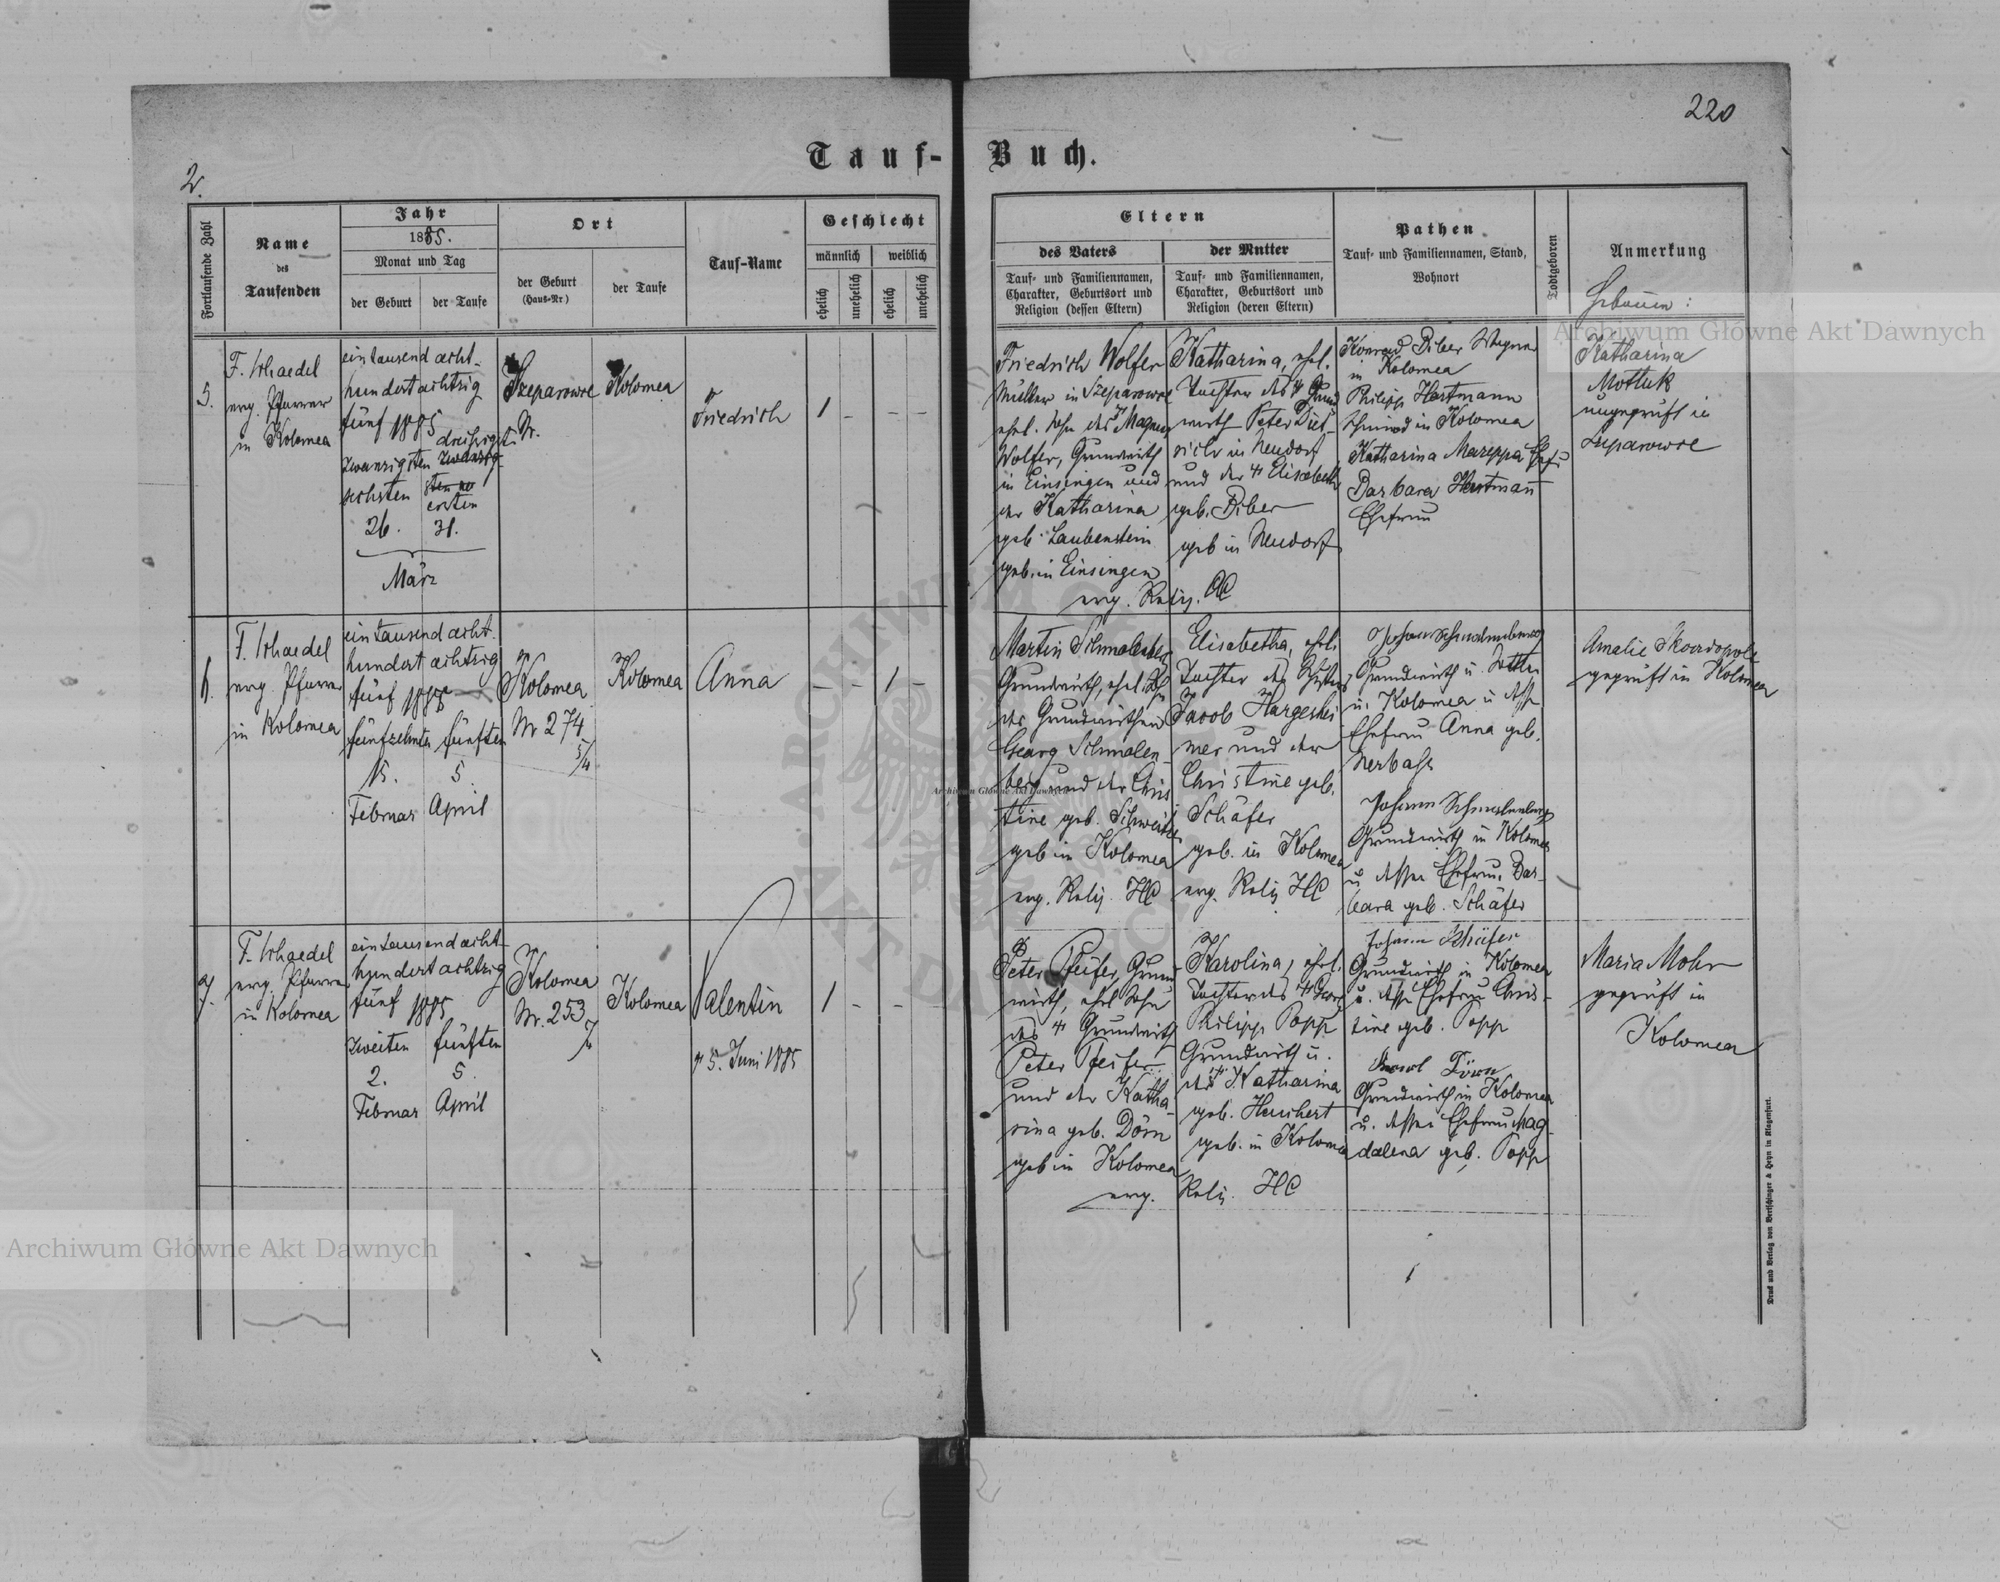 220
Tauf-Buch.
2.
Fortlaufende Zahl
Name
des
Taufenden
Jahr
1885.
Monat und Tag
der Geburt
der Taufe
Ort
der Geburt
(Haus-Nr)
der Taufe
Tauf-Name
Geschlecht
männlich
weiblich
ehelich
unehelich
ehelich
unehelich
Eltern
des Vaters
Tauf- und Familiennamen,
Charakter, Geburtsort und
Religion (dessen Eltern)
der Mutter
Tauf- und Familiennamen,
Charakter, Geburtsort und
Religion (deren Eltern)
Pathen
Tauf- und Familiennamen, Stand,
Wohnort
Todtgeboren
Anmerkung
5.
F. Schaedel
evg. Pfarrer
in Kolomea
eintausend acht-
hundert achtzig
fünf 1885
zwanzigsten
sechsten
26.
dreißigst-
ersten
31.
März
Szeparowce
Nr.
Kolomea
Friedrich
1 - - -
Friedrich Wolfer
Müller in Szeparowce
ehel. Sohn des
Wolfer, Grundwirth
in Einsingen und
der Katharina
geb. Laubenstein
geb. in Einsingen
evg. Relig. AC
Katharina, ehel.
Tochter des † Grund
wirth Peter Diet-
rich in Neudorf
und der † Elisabeth
geb. Biber
geb in Neudorf
Konrad Biber Wagner
in Kolomea
Philipp Hartmann
Schmied in Kolomea
Katharina
Barbara Hartmann
Ehefrau
Katharina
Motluk
ungeprüft in
Szeparowce
6.
F. Schaedel
evg. Pfarrer
in Kolomea
eintausend acht-
hundert achtzig
fünf 1885
fünfzehnten
15.
Februar
fünften
5.
April
Kolomea
Nr 274
Kolomea
Anna
- - 1 -
Martin Schmalenberg
Grundwirth, ehel. Sohn
des Grundwirthen
Georg Schmalen-
berg und der Chris
tine geb. Schweitzer
geb in Kolomea
evg. Relig. HC
Elisabetha, ehel.
Tochter des
Jacob Hargeshei
mer und der
Christine geb.
Schäfer
geb. in Kolomea
evg. Relig HC
Johann Schmalenberg
Grundwirth
Kolomea u.
Ehefrau Anna geb.
Johann Schmalenberg
Grundwirth in Kolomea
u dessen Ehefrau Bar-
bara geb. Schäfer
Amalie
geprüft in Kolomea
7.
F. Schaedel
evg. Pfarrer
in Kolomea
eintausend acht-
hundert achtzig
fünf 1885
zweiten
2.
Februar
fünften
5.
April
Kolomea
Nr. 253
Kolomea
Valentin
† 5. Juni 1885
1 - - -
Peter Pfeifer, Grund
wirth, ehel Sohn
des † Grundwirth
Peter Pfeifer
und der Katha-
rina geb. Dörn
geb in Kolomea
evg. Relig. HC
Karolina, ehel.
Tochter des †
Philipp Popp
Grundwirth u.
der † Katharina
geb. Heuchert
geb. in Kolomea
Johann Schäfer
Grundwirth in Kolomea
u. dessen Ehefrau Chris-
tine geb. Popp
Grundwirth in Kolomea
u. dessen Ehefrau Mag-
dalena geb. Popp
Maria Mohr
geprüft in
Kolomea
Druck und Verlag von Bertschinger & Heyn in Klagenfurt.
Archiwum Główne Akt Dawnych
Archiwum Główne Akt Dawnych
Archiwum Główne Akt Dawnych